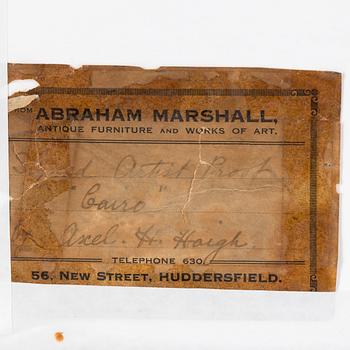 FROM ABRAHAM MARSHALL,
ANTIQUE FURNITURE AND WORKS OF ART.
Signed Artist Proof
"Cairo"
Axel. H. Haigh.
TELEPHONE 630.
56, NEW STREET, HUDDERSFIELD.